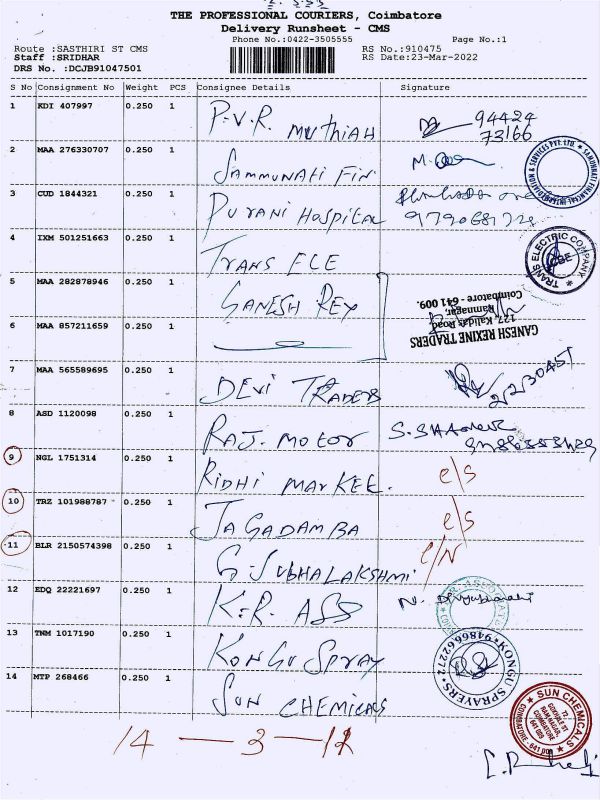 THE PROFESSIONAL COURIERS, Coimbatore
Delivery Runsheet - CMS
Phone No.:0422-3505555 Page No.:1
Route :SASTHIRI ST CMS RS No.:910475
Staff :SRIDHAR RS Date:23-Mar-2022
DRS No. :DCJB91047501
S No Consignment No Weight PCS Consignee Details Signature
1 KDI 407997 0.250 1 P.V.R. MUTHIAH 94424
73166
2 MAA 276330707 0.250 1 SAMMUNATI FIN
3 CUD 1844321 0.250 1 PURANI HOSPITAL
4 IXM 501251663 0.250 1 TRANS ELE
TRANS ELECTRIC COMPANY
CBE
5 MAA 282878946 0.250 1 GANESH REX
GANESH REXINE TRADERS
127, Kalidas Road,
Ramnagar,
Coimbatore - 641 009.
6 MAA 857211659 0.250 1
7 MAA 565589695 0.250 1 DEVI TRADERS
8 ASD 1120098 0.250 1 RAJ. MOTOR
9 NGL 1751314 0.250 1 RIDHI MARKEE. c/s
10 TRZ 101988787 0.250 1 JAGADAMBA c/s
11 BLR 2150574398 0.250 1 G. SUBHALAKSHMI C/N
12 EDQ 22221697 0.250 1 K.R. ASS
13 TNM 1017190 0.250 1 KONGU SPRAY
KONGU SPRAYERS
9486662272
14 MTP 268466 0.250 1 SUN CHEMICALS
SUN CHEMICALS
72
GOKHALE ST
RAM NAGAR,
COIMBATORE
641 009
14 - 3 - 12